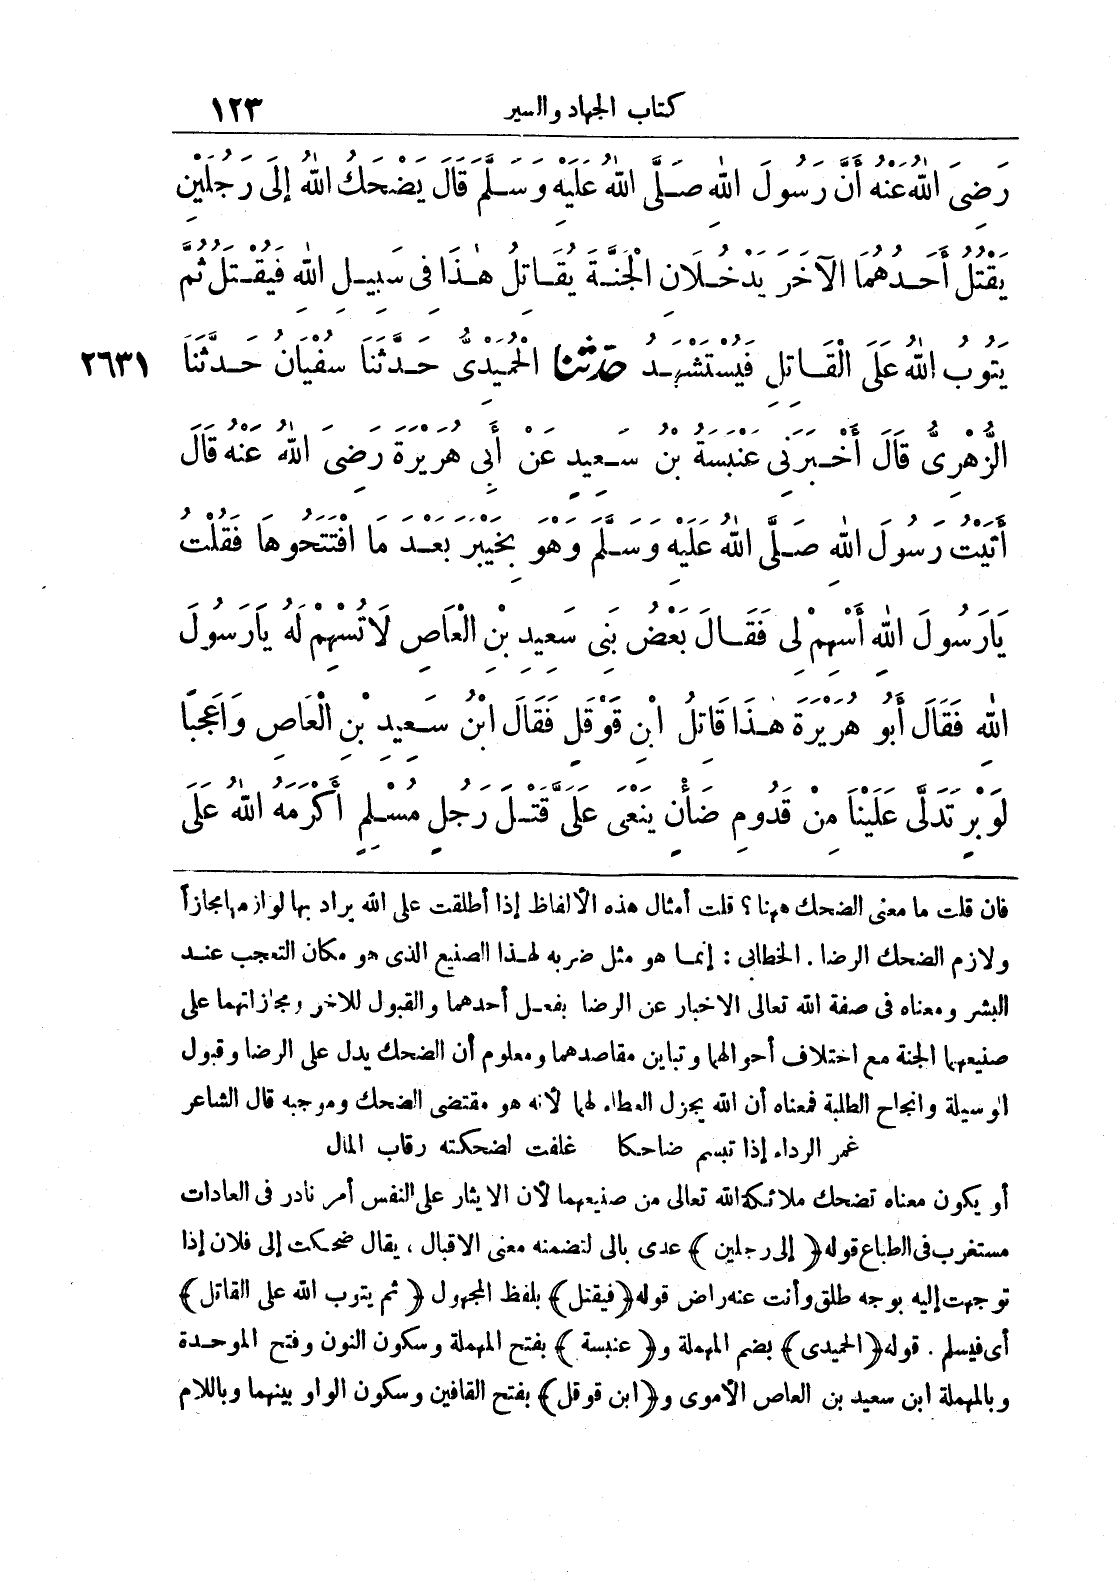 كتاب الجهاد والسير ١٢٣
رَضِىَ اللهُ عَنْهُ أَنَّ رَسُولَ اللهِ صَلَّى اللهُ عَلَيْهِ وَسَلَّمَ قَالَ يَضْحَكُ اللهُ إِلَى رَجُلَيْنِ
يَقْتُلُ أَحَدُهُمَا الآخَرَ يَدْخُلَانِ الْجَنَّةَ يُقَاتِلُ هٰذَا فِى سَبِيلِ اللهِ فَيُقْتَلُ ثُمَّ
يَتُوبُ اللهُ عَلَى الْقَاتِلِ فَيُسْتَشْهَدُ حَدَّثَنَا الْحُمَيْدِىُّ حَدَّثَنَا سُفْيَانُ حَدَّثَنَا ٢٦٣١
الزُّهْرِىُّ قَالَ أَخْبَرَنِى عَنْبَسَةُ بْنُ سَعِيدٍ عَنْ أَبِى هُرَيْرَةَ رَضِىَ اللهُ عَنْهُ قَالَ
أَتَيْتُ رَسُولَ اللهِ صَلَّى اللهُ عَلَيْهِ وَسَلَّمَ وَهْوَ بِخَيْبَرَ بَعْدَ مَا افْتَتَحُوهَا فَقُلْتُ
يَارَسُولَ اللهِ أَسْهِمْ لِى فَقَالَ بَعْضُ بَنِى سَعِيدِ بْنِ الْعَاصِ لَا تُسْهِمْ لَهُ يَارَسُولَ
اللهِ فَقَالَ أَبُو هُرَيْرَةَ هٰذَا قَاتِلُ ابْنِ قَوْقَلٍ فَقَالَ ابْنُ سَعِيدِ بْنِ الْعَاصِ وَاعَجَبًا
لِوَبْرٍ تَدَلَّى عَلَيْنَا مِنْ قَدُومِ ضَأْنٍ يَنْعَى عَلَىَّ قَتْلَ رَجُلٍ مُسْلِمٍ أَكْرَمَهُ اللهُ عَلَى
فان قلت ما معنى الضحك ههنا؟ قلت أمثال هذه الألفاظ إذا أطلقت على الله يراد بها لوازمها مجازاً
ولازم الضحك الرضا. الخطابى: إنما هو مثل ضربه لهذا الصنيع الذى هو مكان التعجب عند
البشر ومعناه فى صفة الله تعالى الاخبار عن الرضا بفعل أحدهما والقبول للآخر ومجازاتهما على
صنيعهما الجنة مع اختلاف أحوالهما وتباين مقاصدهما ومعلوم أن الضحك يدل على الرضا وقبول
الوسيلة وانجاح الطلبة فمعناه أن الله يجزل العطاء لهما لأنه هو مقتضى الضحك وموجبه قال الشاعر
غمر الرداء إذا تبسم ضاحكا غلفت لضحكته رقاب المال
أو يكون معناه تضحك ملائكة الله تعالى من صنيعهما لأن الايثار على النفس أمر نادر فى العادات
مستغرب فى الطباع قوله ﴿إلى رجلين﴾ عدى بالى لتضمنه معنى الاقبال، يقال ضحكت إلى فلان إذا
توجهت إليه بوجه طلق وأنت عنه راض قوله ﴿فيقتل﴾ بلفظ المجهول ﴿ثم يتوب الله على القاتل﴾
أى فيسلم. قوله ﴿الحميدى﴾ بضم المهملة و﴿عنبسة﴾ بفتح المهملة وسكون النون وفتح الموحدة
وبالمهملة ابن سعيد بن العاص الأموى و﴿ابن قوقل﴾ بفتح القافين وسكون الواو بينهما وباللام